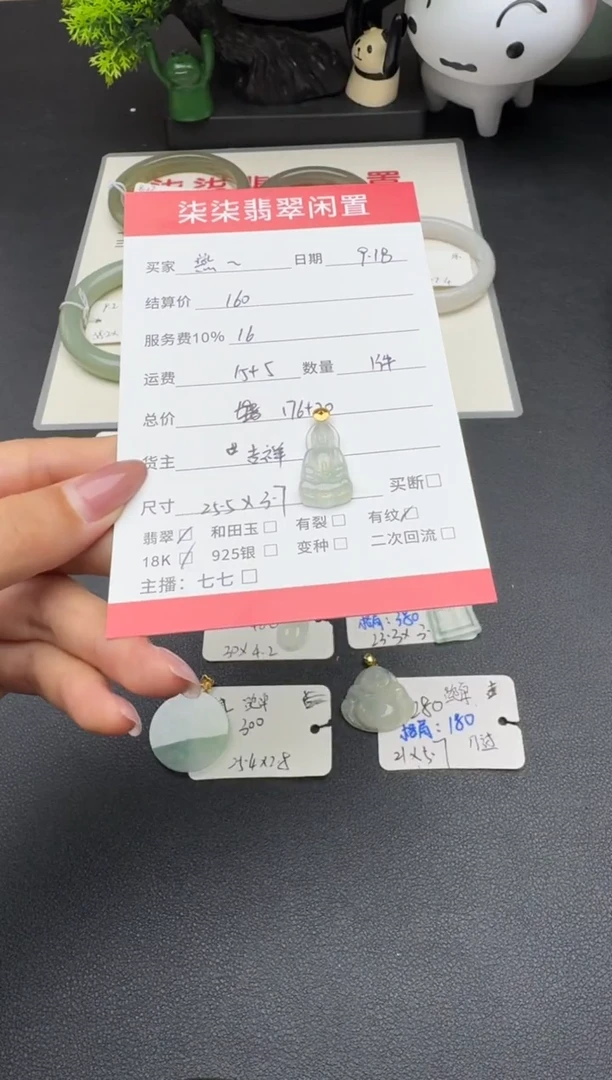 柒柒翡翠闲置
买家 日期 9.18
结算价 160
服务费10% 16
运费 15+5 数量 1件
总价 176+20
货主 吉祥
尺寸 25.5×3.7 买断□
翡翠☑ 和田玉□ 有裂□ 有纹☑
18K☑ 925银□ 变种□ 二次回流□
主播：七七□
30×4.2
结缘：380
23.3×3.
300
25.4×2.8
280
结缘：180
21×5.7